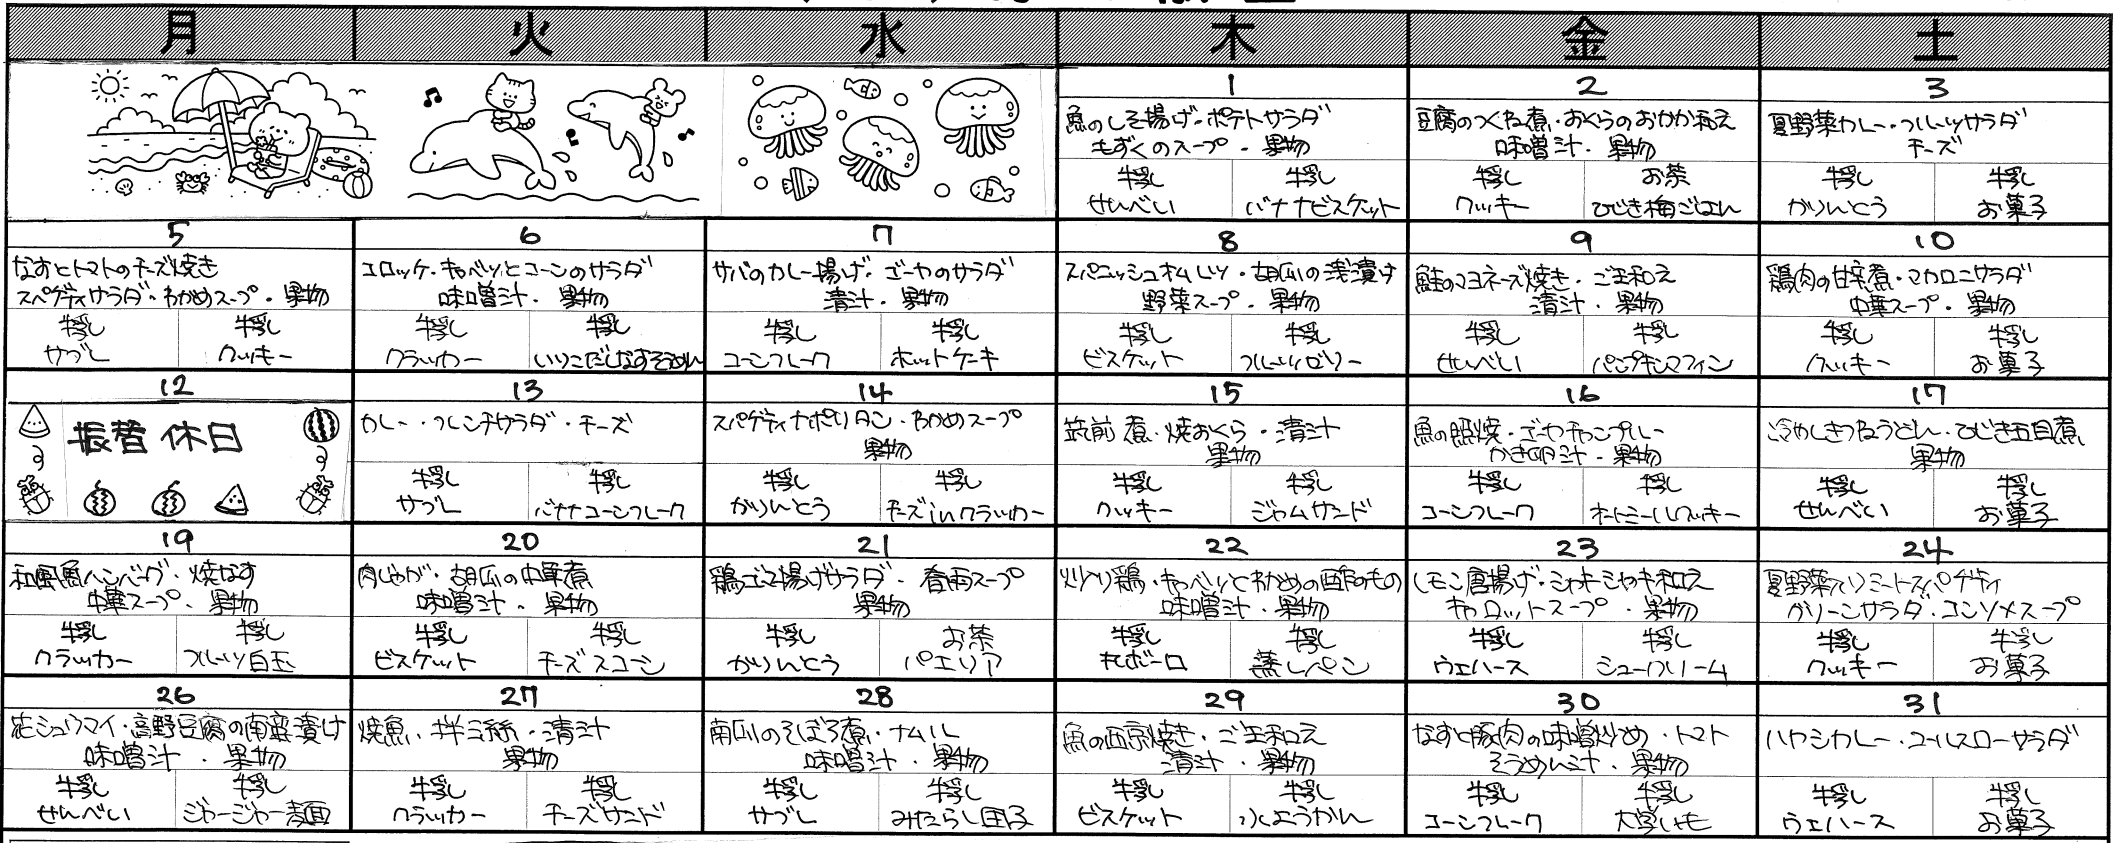 月 火 水 木 金 土
1
魚のしそ揚げ・ポテトサラダ
もずくのスープ・果物
牛乳 牛乳
せんべい バナナビスケット
2
豆腐のつくね煮・おくらのおかか和え
味噌汁・果物
牛乳 お茶
クッキー ひじき梅ごはん
3
夏野菜カレー・フルーツサラダ
チーズ
牛乳 牛乳
かりんとう お菓子
5
なすとトマトのチーズ焼き
スパゲティサラダ・わかめスープ・果物
牛乳 牛乳
サブレ クッキー
6
コロッケ・キャベツとコーンのサラダ
味噌汁・果物
牛乳 牛乳
クラッカー いりこだしなすそうめん
7
サバのカレー揚げ・ゴーヤのサラダ
清汁・果物
牛乳 牛乳
コーンフレーク ホットケーキ
8
スパニッシュオムレツ・胡瓜の浅漬け
野菜スープ・果物
牛乳 牛乳
ビスケット フルーツゼリー
9
鮭のマヨネーズ焼き・ごま和え
清汁・果物
牛乳 牛乳
せんべい パンプキンマフィン
10
鶏肉の甘辛煮・マカロニサラダ
中華スープ・果物
牛乳 牛乳
クッキー お菓子
12
振替休日
13
カレー・フレンチサラダ・チーズ
牛乳 牛乳
サブレ バナナコーンフレーク
14
スパゲティナポリタン・わかめスープ
果物
牛乳 牛乳
かりんとう チーズinクラッカー
15
筑前煮・焼おくら・清汁
果物
牛乳 牛乳
クッキー ジャムサンド
16
魚の照焼・ゴーヤチャンプルー
かき卵汁・果物
牛乳 牛乳
コーンフレーク オートミールクッキー
17
冷やしきつねうどん・ひじき五目煮
果物
牛乳 牛乳
せんべい お菓子
19
和風魚ハンバーグ・焼なす
中華スープ・果物
牛乳 牛乳
クラッカー フルーツ白玉
20
肉じゃが・胡瓜の中華煮
味噌汁・果物
牛乳 牛乳
ビスケット チーズスコーン
21
鶏ゴマ揚げサラダ・春雨スープ
果物
牛乳 お茶
かりんとう パエリア
22
炒り鶏・キャベツとわかめの酢のもの
味噌汁・果物
牛乳 牛乳
丸ボーロ 蒸しパン
23
レモン唐揚げ・シャキシャキ和え
キャロットスープ・果物
牛乳 牛乳
ウェハース シュークリーム
24
夏野菜入りミートスパゲティ
グリーンサラダ・コンソメスープ
牛乳 牛乳
クッキー お菓子
26
花シュウマイ・高野豆腐の南蛮漬け
味噌汁・果物
牛乳 牛乳
せんべい ジャージャー麺
27
焼魚・拌三絲・清汁
果物
牛乳 牛乳
クラッカー チーズサンド
28
南瓜のそぼろ煮・ナムル
味噌汁・果物
牛乳 牛乳
サブレ みたらし団子
29
魚の西京焼き・ごま和え
清汁・果物
牛乳 牛乳
ビスケット 水ようかん
30
なすと豚肉の味噌炒め・トマト
そうめん汁・果物
牛乳 牛乳
コーンフレーク 大学いも
31
ハヤシカレー・コールスローサラダ
牛乳 牛乳
ウェハース お菓子